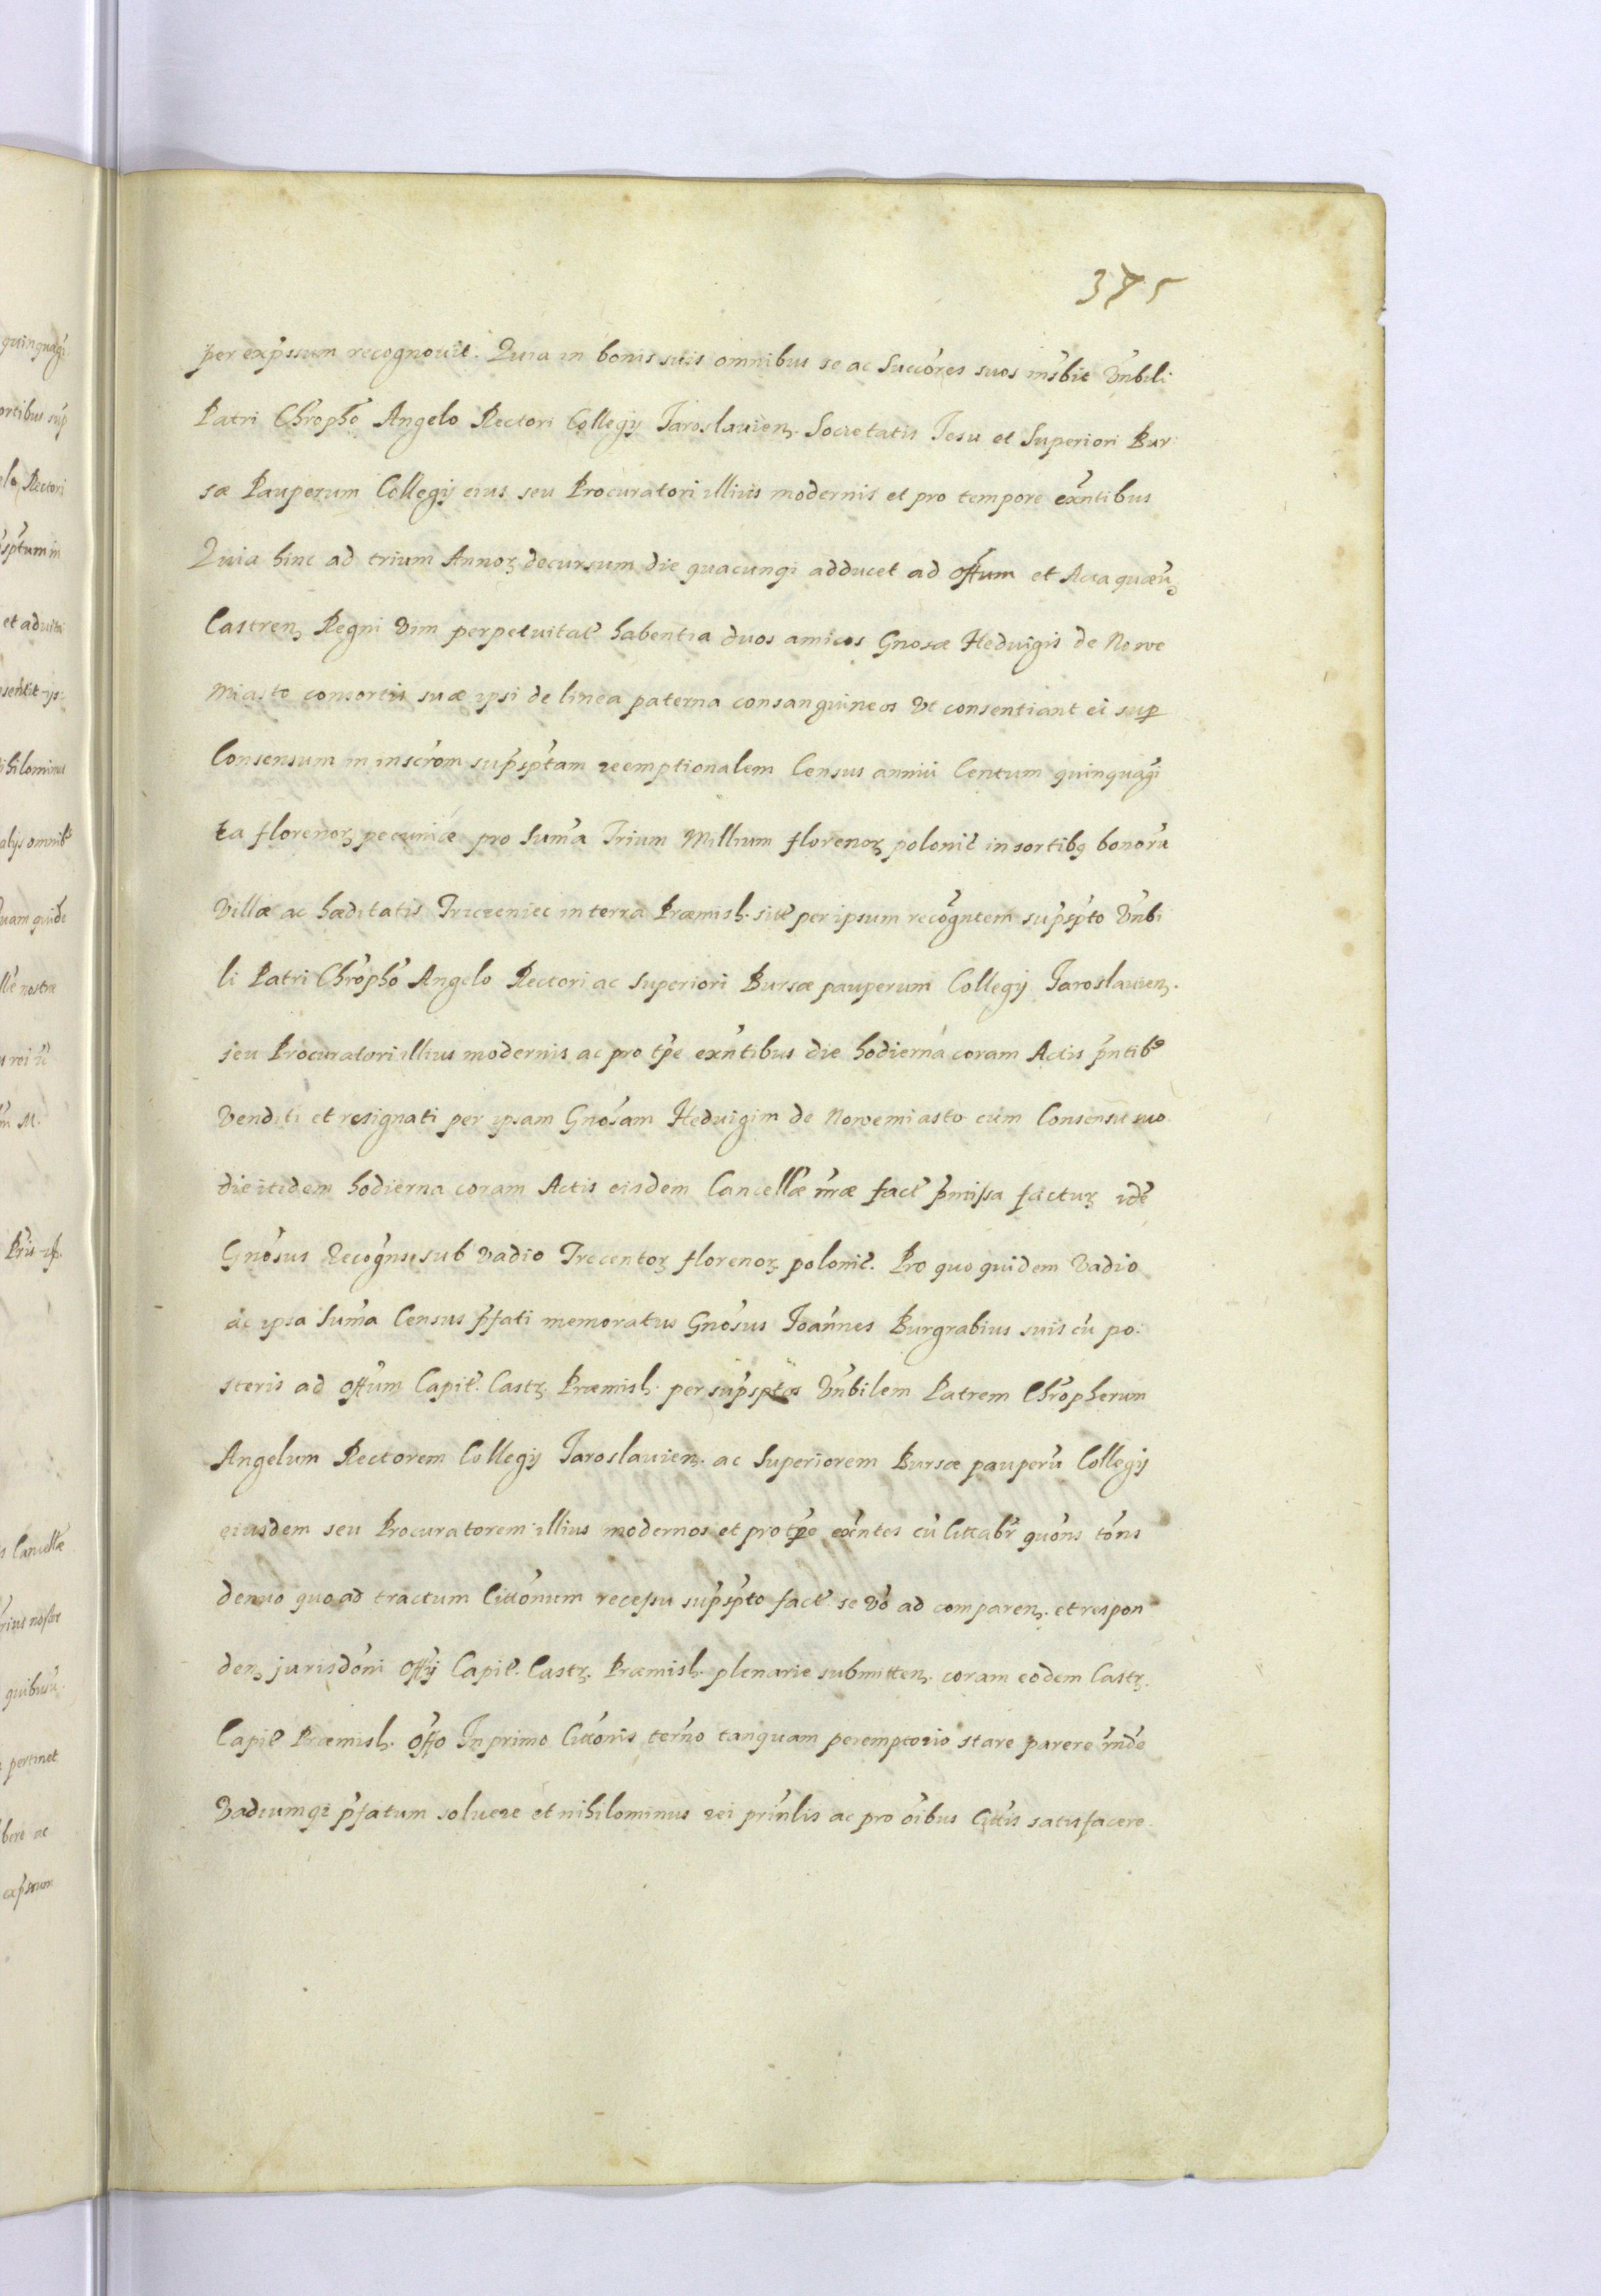 375
per exp̃ssum recognovit. Quia in bonis suis omnibus se ac Succores suos insbit Vnbili
Patri Chropho Angelo Rectori Collegij Jaroslauien. Societatis Jesu et Superiori Bur
sæ Pauperum Collegij eius seu Procuratori illius modernis et pro tempore exñtibus
Quia hinc ad trium Annoꝝ decursum die quacunqi adducet ad Offum et Acta quæuꝫ
Castren. Regni vim perpetuitat̃ habentia duos amicos Gnosæ Hedvigis de Nowe
Miasto consortis suæ ipsi de linea paterna consanguineos vt consentiant ei sup̱
Consensum in inscr̃om sup̃sp̃tam reemptionalem Census annui Centum quinquagi
ta florenoꝝ pecuniæ pro Sum̃a Trium Millium florenoꝝ polonic̃ in sortibꝫ bonorũ
Villæ ac hæditatis Trzczeniec in terra Præmisl. sit̃ per ipsum recog̃ntem sup̃sp̃to Vñbi
li Patri Chr̃oph̃o Angelo Rectori ac Superiori Bursæ pauperum Collegij Jaroslauien.
seu Procuratori illius modernis ac pro tp̃e exñtibus die hodierna coram Actis p̃ntibꝰ
Venditi et resignati per ipsam Gnõsam Hedvigim de Nowemiasto cum Consensu suo
die itidem hodierna coram Actis eisdem Cancellæ ñræ fact̃ p̃missa factuꝝ idẽ
Gnõsus Recog̃ns sub vadio Trecentoꝝ florenoꝝ polonic̃. Pro quo quidem Vadio
ac ipsa Sum̃a Census p̃fati memoratus Gnõsus Joañnes Burgrabius suis cũ po:
steris ad Offum Capit̃. Castꝝ. Præmisl. per sup̃sptos Vñbilem Patrem Chr̃opherum
Angelum Rectorem Collegij Jaroslauien. ac Superiorem Bursæ pauperũ Collegij
eiusdem seu Procuratorem illius modernos et pro tp̃e exñtes cũ Cittabr̃ quõns tõns
denuo quo ad tractum Cittõnum recessu sup̃sp̃to fact̃ se võ ad comparen. et respon
den. jurisdõni Offij Capit̃. Castꝝ. Præmisl. plenarie submitten. coram eodem Castꝝ.
Capit̃ Præmisl. Offo In primo Cittõnis ter̃no tanquam peremptorio stare parere r̃ndẽ
Vadiumqꝫ p̃fatum soluere et nihilominus rei prinlis ac pro oĩbus Cittis satisfacere